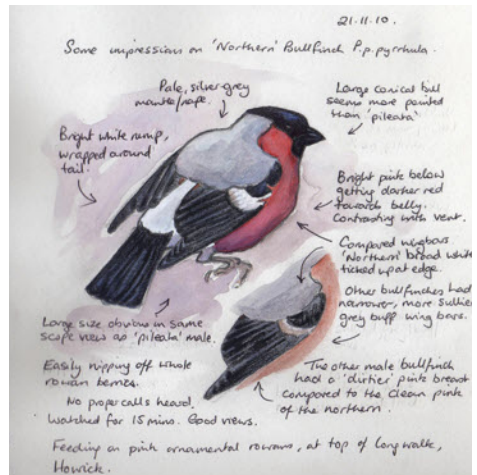 21.11.10.
Some impressions on 'Northern' Bullfinch P.p.pyrrhula.
Pale, silver-grey
mantle/nape.
Large conical bill
seems more pointed
than 'pileata'
Bright white rump,
wrapped around
tail.
Bright pink below
getting darker red
towards belly.
Contrasting with vent.
Compared wingbars.
'Northern' broad white
ticked up at edge.
Other bullfinches had
narrower, more sullied
grey buff wing bars.
Large size obvious in same
scope view as 'pileata' male.
Easily nipping off whole
rowan berries.
No proper calls heard.
Watched for 15 mins. Good views.
The other male bullfinch
had a 'dirtier' pink breast
compared to the clean pink
of the northern.
Feeding on pink ornamental rowans, at top of long walk,
Howick.